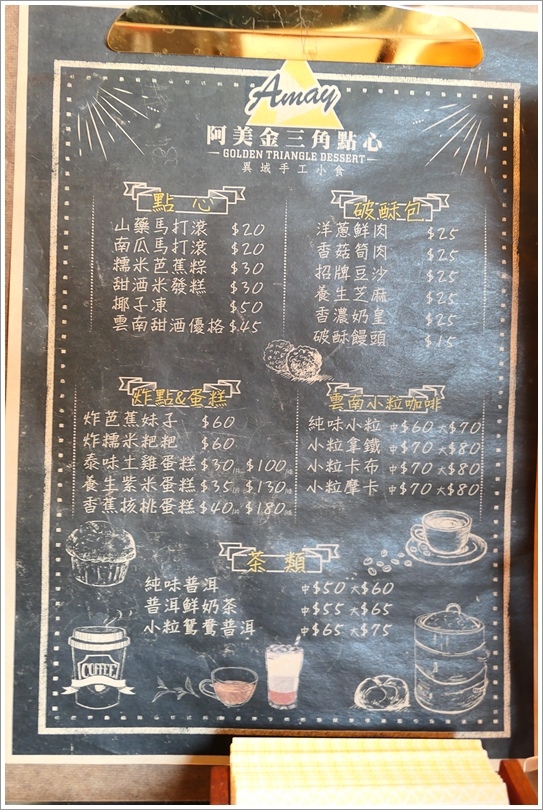 Amay
阿美金三角點心
GOLDEN TRIANGLE DESSERT
異域手工小食
點心
山藥馬打滾 $20
南瓜馬打滾 $20
糯米芭蕉粽 $30
甜酒米發糕 $30
椰子凍 $50
雲南甜酒優格 $45
破酥包
洋蔥鮮肉 $25
香菇筍肉 $25
招牌豆沙 $25
養生芝麻 $25
香濃奶皇 $25
破酥饅頭 $15
炸點&蛋糕
炸芭蕉妹子 $60
炸糯米粑粑 $60
泰味土雞蛋糕 $30 $100
養生紫米蛋糕 $35 $130
香蕉核桃蛋糕 $40 $180
雲南小粒咖啡
純味小粒 中$60 大$70
小粒拿鐵 中$70 大$80
小粒卡布 中$70 大$80
小粒摩卡 中$70 大$80
茶類
純味普洱 中$50 大$60
普洱鮮奶茶 中$55 大$65
小粒鴛鴦普洱 中$65 大$75
COFFEE